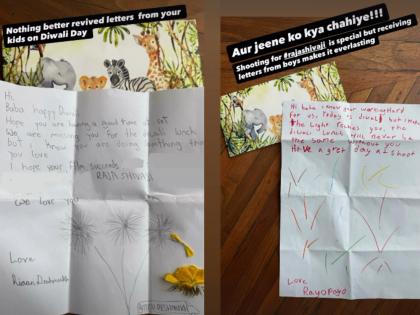 Nothing better revived letters from your
kids on Diwali Day
Hi
Baba happy Diwali
Hope you are having a good time at set
We are missing you for the diwali lunch
but i know you are doing something that
you love
I hope your film succeeds
RAJA SHIVAJI
We love you
Love
Riaan Deshmukh
Aur jeene ko kya chahiye!!!
Shooting for #rajashivaji is special but receiving
letters from boys makes it everlasting
Hi baba i know your workinghard
for us, Today is diwali but
the light reaches you, the
diwali lunch will never be
the same without you
Have a gret day at shoot
Love
Rayopoyo